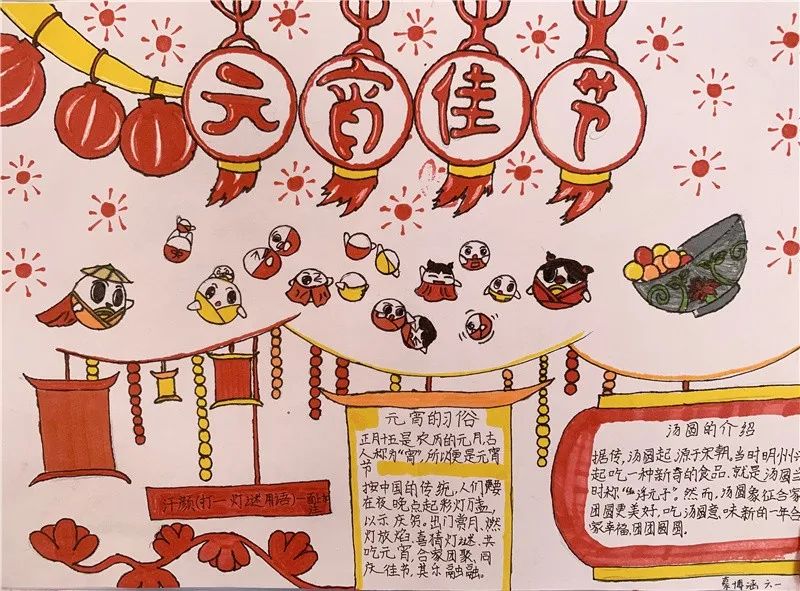 元宵佳节
汗颜(打一灯谜用语)一面
元宵的习俗
正月十五是农历的元月,古
人称为“宵”,所以便是元宵
节
按中国的传统,人们要
在夜晚点起彩灯万盏,
以示庆努.出门赏月、燃
灯放焰、喜猜灯谜、共
吃元宵,合家团聚、同
庆佳节,其乐融融。
汤圆的介绍
据传,汤圆起源于宋朝.当时明州
起吃一种新奇的食品.就是汤圆当
时称“浮元子”.然而,汤圆象征合家
团圆更美好,吃汤圆意味新的一年合
家幸福,团团圆圆.
博涵 六一